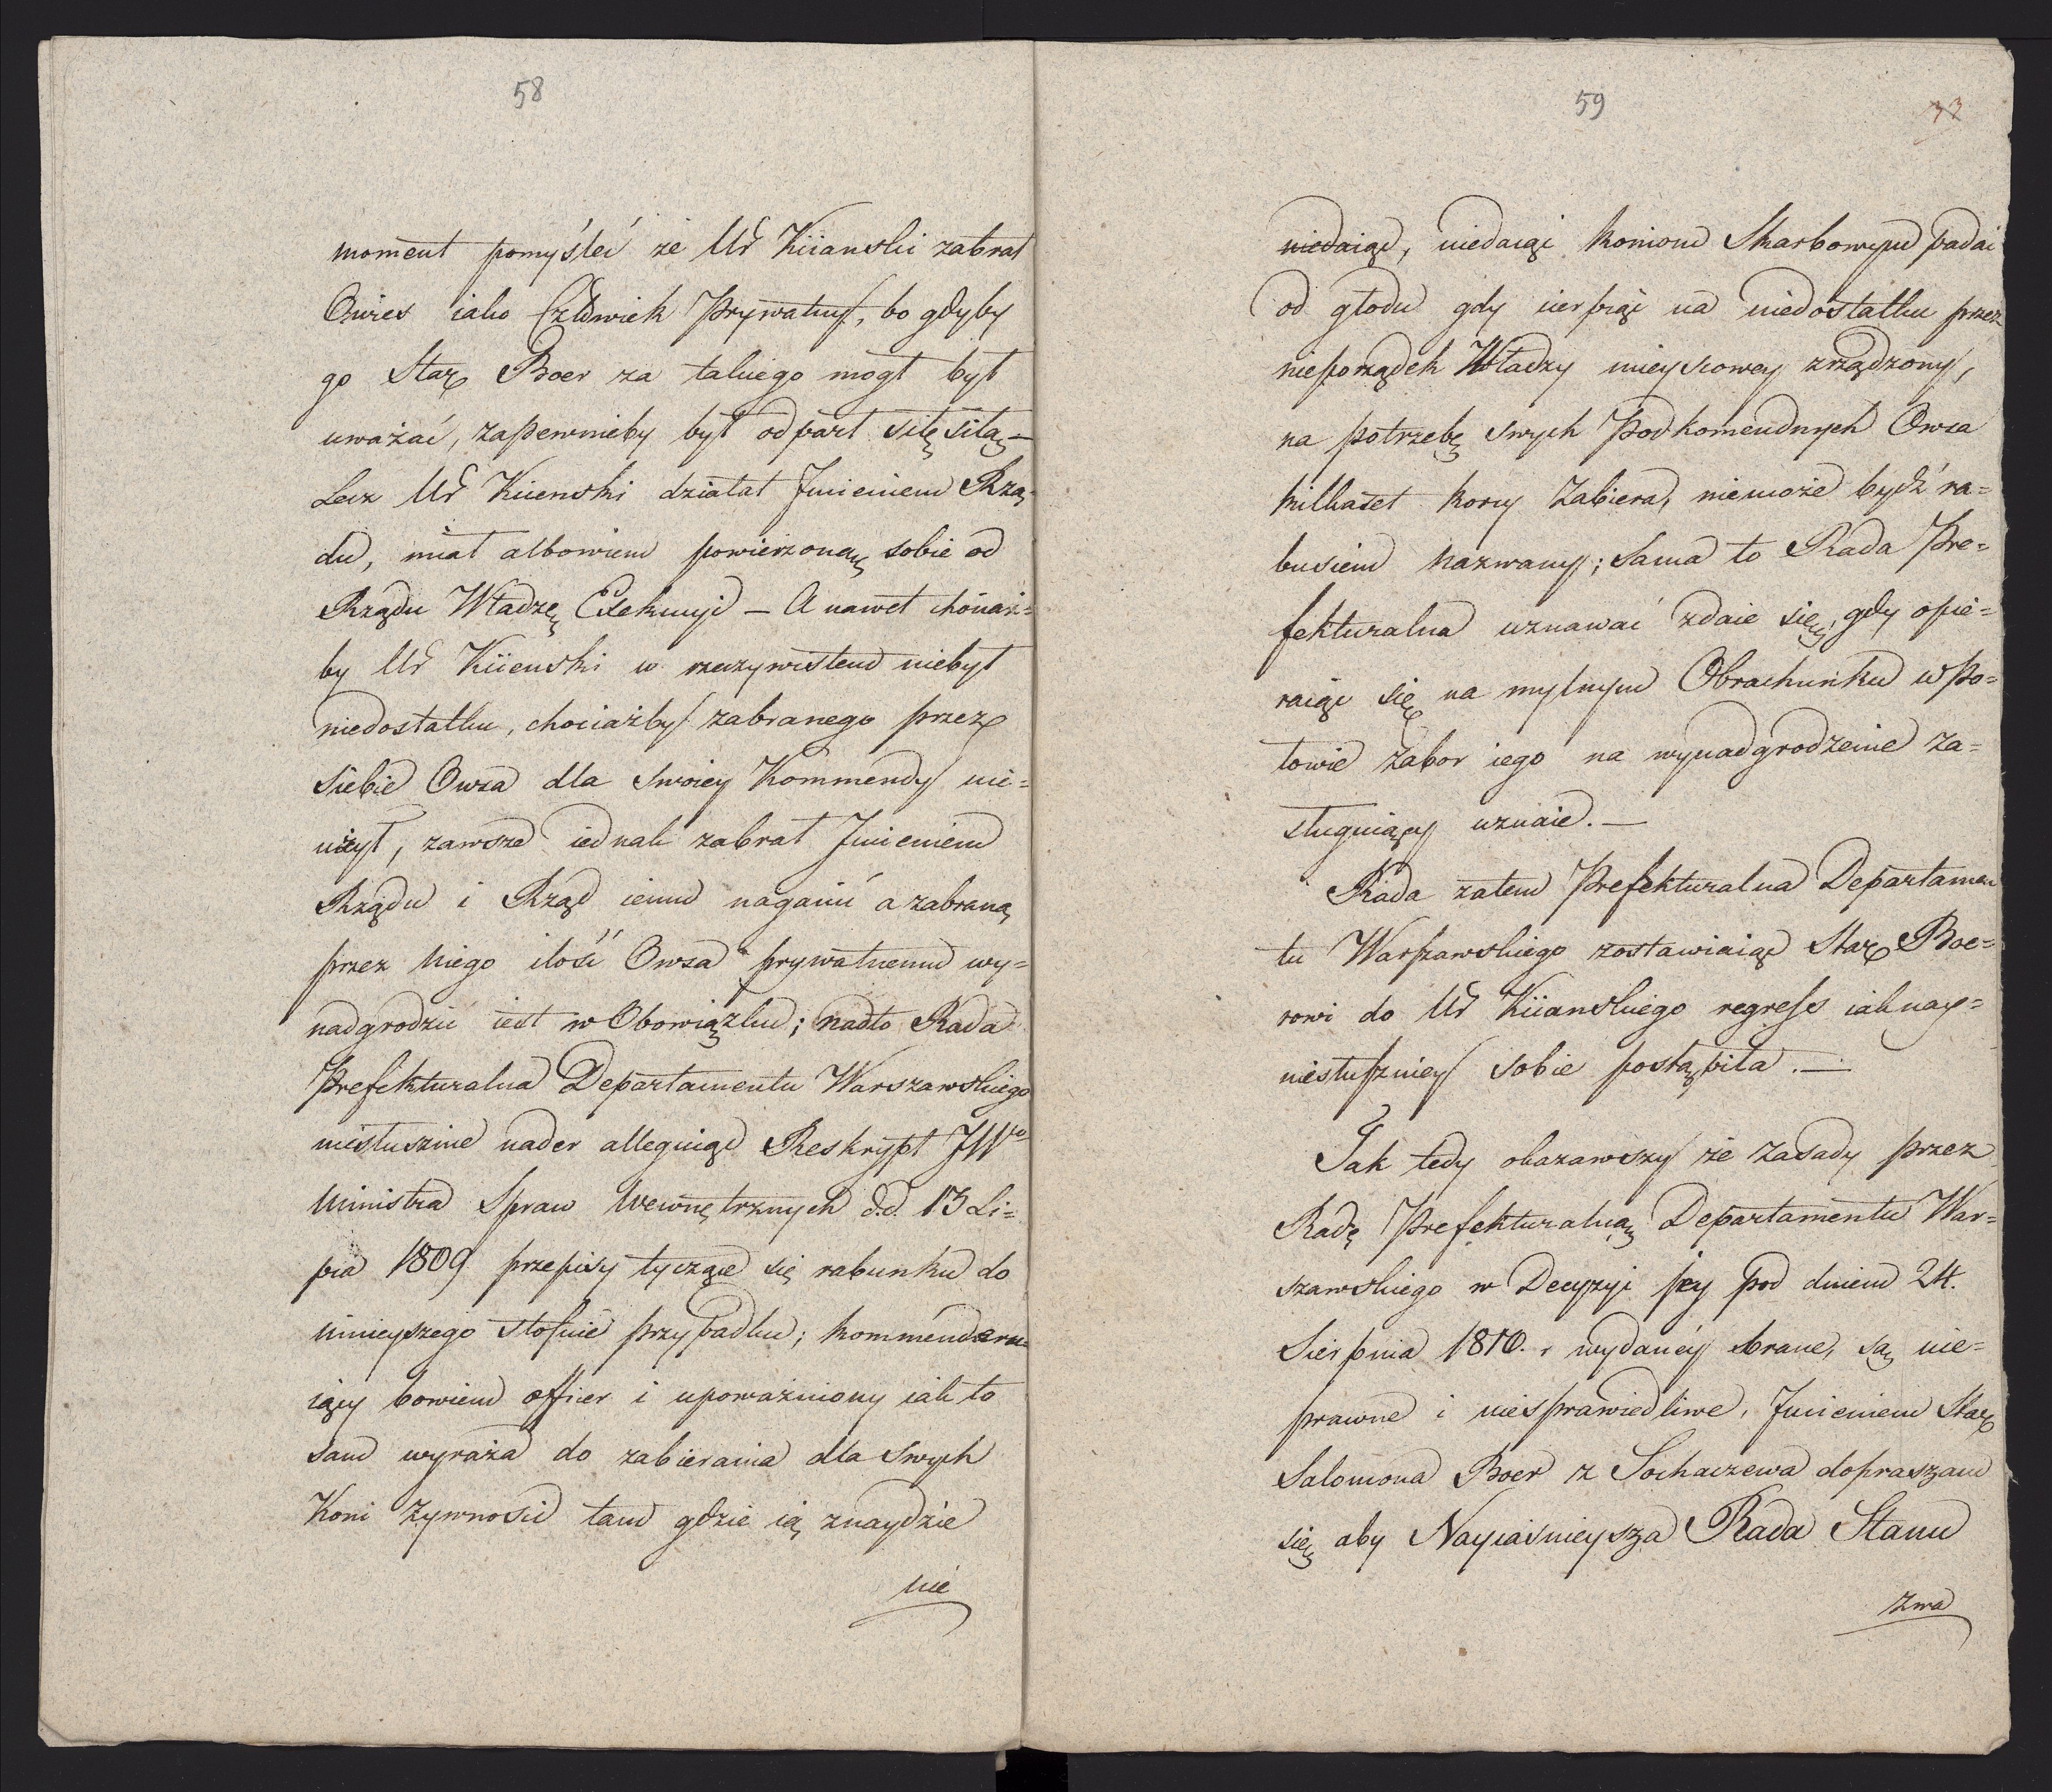 58
moment pomyśleć że Ur Kiianski zabrał
Owies iako Człowiek Prywatny, bo gdyby
go Starz Boer za takiego mogł był
uważać, zapewnieby był odparł siłę siłą –
Lecz Ur Kiienski działał Jmieniem Rzą-
du, miał albowiem powierzoną sobie od
Rządu Władzę Exekucyi – A nawet chociaż=
by Ur Kiienski w rzeczywistem niebył
niedostatku, chociażby zabranego przez
siebie Owsa dla swoiey Kommendy nie=
użył, zawsze iednak zabrał Jmieniem
Rządu i Rząd iemu naganić a zabraną
przez niego ilość Owsa prywatnemu wy=
nadgrodzić iest w Obowiązku; nadto Rada
Prefekturalna Departamentu Warszawskiego
niesłusznie nader alleguiąc Reskrypt JWo
Ministra Spraw Wewnętrznych d.d. 13 Li=
pca 1809 przepisy tyczące się rabunku do
ninieyszego stosuie przypadku; kommenderu=
iący bowiem officer i upoważniony iak to
sam wyraża do zabierania dla swych
Koni żywności tam gdzie ią znaydzie
nie
59
33
niedaiąc, niedaiąc koniom Skarbowym padać
od głodu gdy cierpiąc na niedostatku przez
nieporządek Władzy mieyscowey zrządzony,
na potrzebę swych Podkomendnych Owsa
kilkaset korcy zabiera, niemoże bydź ra=
busiem nazwany; sama to Rada Pre=
fekturalna uznawać zdaie się, gdy opie=
raiąc się na mylnym Obrachunku w Po=
towie zabor iego na wynadgrodzenie za=
sługuiący uznaie. –
Rada zatem Prefekturalna Departamen
tu Warszawskiego zostawiaiąc Starz Boe=
rowi do Ur Kiianskiego regress iaknay=
niesłuszniey sobie postąpiła. –
Jak tedy okazawszy że zasady przez
Radę Prefekturalną Departamentu War=
szawskiego w Decyzyi jey pod dniem 24.
Sierpnia 1810. r wydaney brane, są nie=
prawne i niesprawiedliwe, Jmieniem Starz
Salomona Boer z Sochaczewa dopraszam
się aby Nayiaśnieysza Rada Stanu
zwa